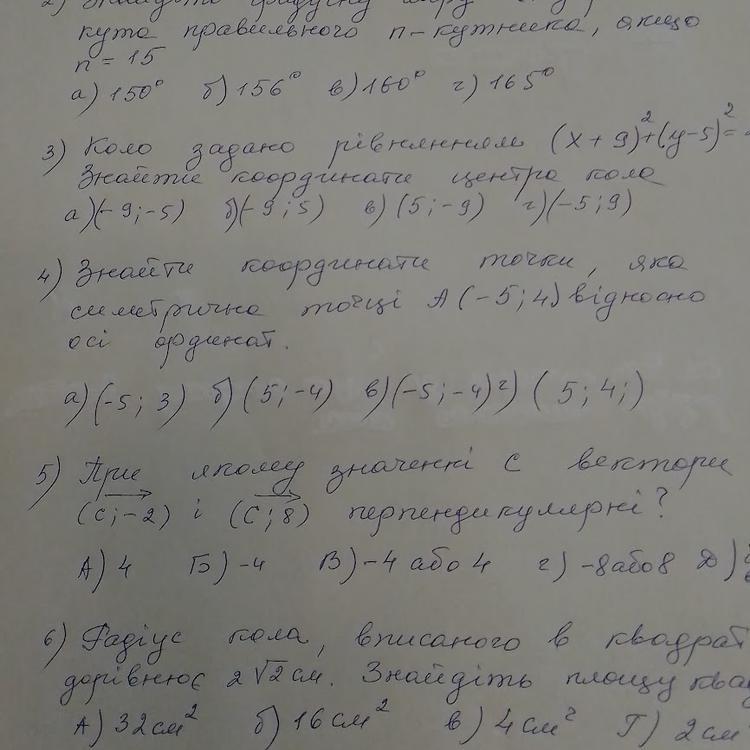 2) Знайдіть градусну міру
кута правильного n-кутника, якщо
n = 15
а) 150° б) 156° в) 160° г) 165°
3) Коло задано рівнянням (x + 9)²+(y-5)²=
Знайти координати центра кола
а)(-9;-5) б)(-9;5) в)(5;-9) г)(-5;9)
4) Знайти координати точки, яка
симетрична точці А(-5;4) відносно
осі ординат.
а)(-5; 3) б)(5;-4) в)(-5;-4) г) (5;4;)
5) При якому значенні С вектори
(С;-2) і (С;8) перпендикулярні?
А) 4 Б)-4 В)-4 або 4 г) -8або8 Д)
6) Радіус кола, вписаного в квадрат
дорівнює 2√2см. Знайдіть площу квад
А) 32см² б) 16см² в) 4см² Г) 2см